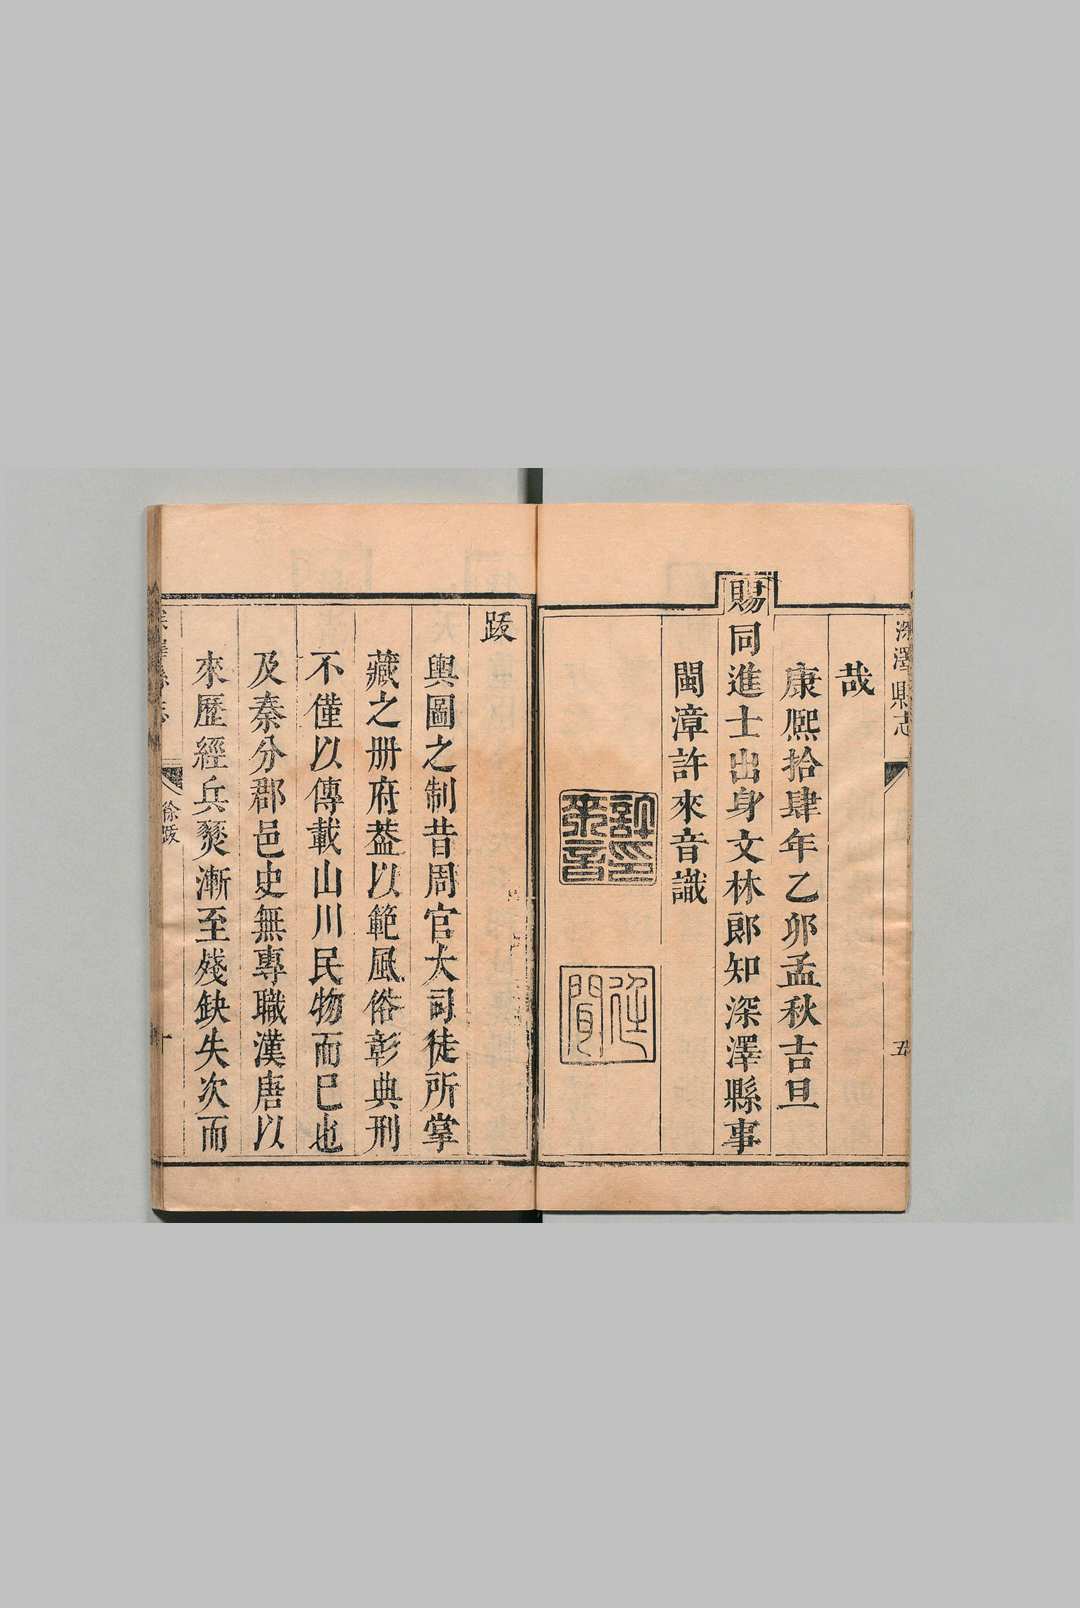 深澤縣志
五
哉
康熙拾肆年乙卯孟秋吉旦
賜同進士出身文林郎知深澤縣事
閩漳許來音識
許來音印
跋
輿圖之制昔周官大司徒所掌
藏之册府葢以範風俗彰典刑
不僅以傳載山川民物而已也
及秦分郡邑史無專職漢唐以
來歷經兵燹漸至殘缺失次而
徐跋
一